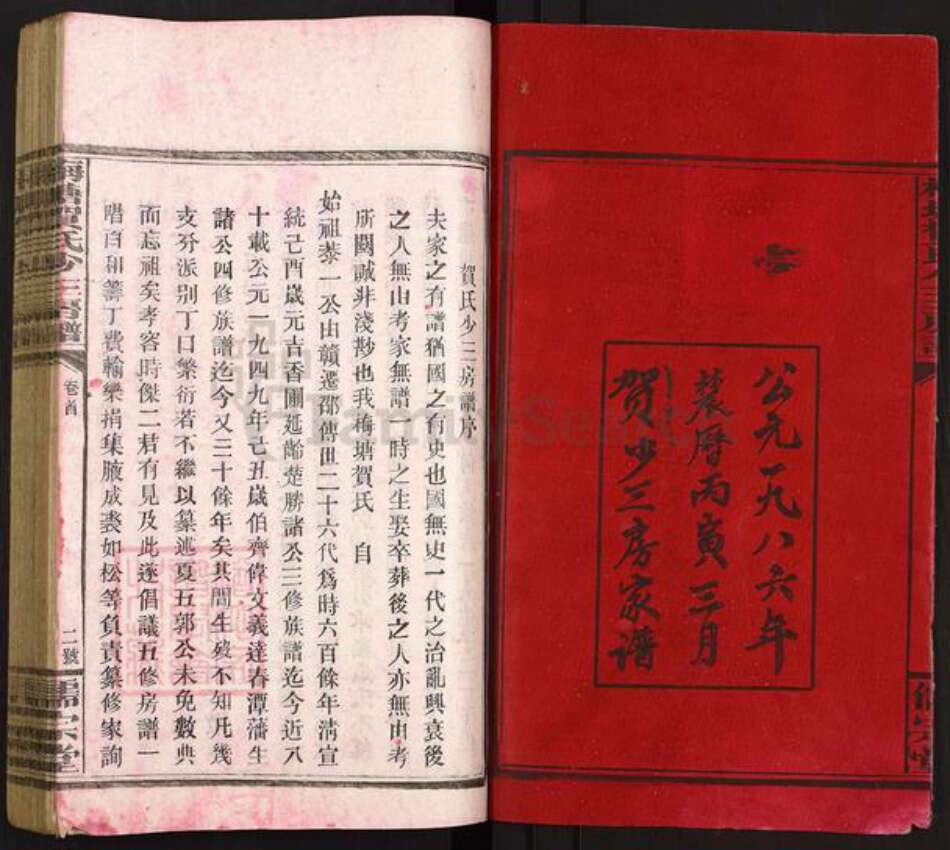 公元一九八六年
農曆丙寅三月
賀少三房家谱
賀氏少三房譜序
夫家之有譜猶國之有史也國無史一代之治亂興衰後
之人無由考家無譜一時之生娶卒葬後之人亦無由考
所關誠非淺尠也我梅塘賀氏 自
始祖泰一公由贛遷邵傳世二十六代爲時六百餘年淸宣
統己酉歲元吉香圃延齡楚勝諸公三修族譜迄今近八
十載公元一九四九年己丑歲伯齊偉文義達春潭藩生
諸公四修族譜迄今又三十餘年矣其間生殁不知凡幾
支分派别丁口繁衍若不繼以纂述夏五郭公未免數典
而忘祖矣孝容時傑二君有見及此遂倡議五修房譜一
唱百和籌丁費輸樂捐集腋成裘如松等負責纂修家詢
梅塘賀氏少三房譜
卷首
二號
儒宗堂